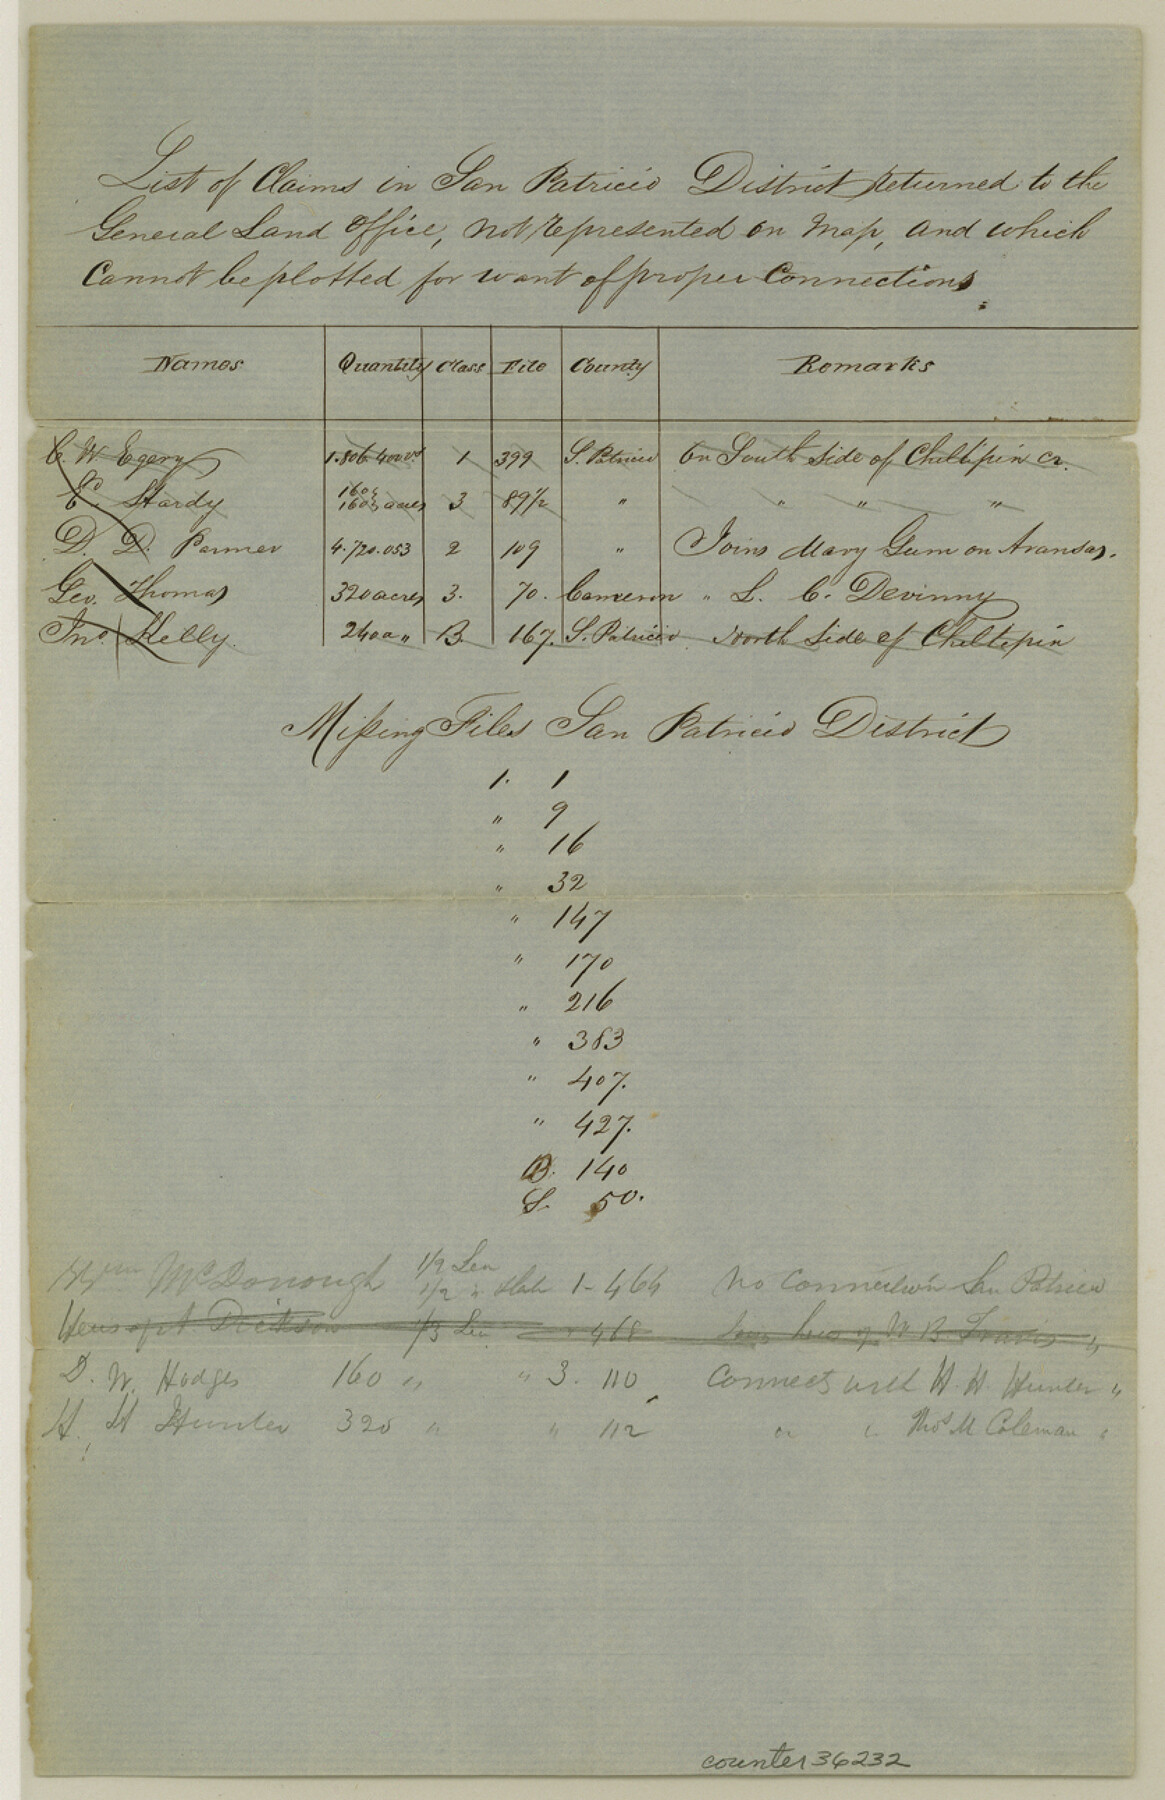 List of Claims in San Patricio District returned to the
General Land Office, not represented on Map, and which
Cannot be plotted for want of proper Connections.
Names Quantity Class File County Remarks
C. W Egery 1.806.400 vs 1 399 S. Patricio On South Side of Chiltipin Cr.
E. Hardy 160 160 acres 3 89½ " " " "
D. D. Parmer 4.720.053 2 109 " Joins Mary Gum on Aransas.
Geo. Thomas 320 acres 3. 70. Cameron " L. C. Devinny
Jno. Kelly. 240 a " B 167. S. Patricio North Side of Chiltipin
Missing Files San Patricio District
1. 1
" 9
" 16
" 32
" 147
" 170
" 216
" 383
" 407.
" 427.
B. 140
S. 50.
Wm McDonough 1/2 Lea 1/2 " 1-464 No Connection San Patricio
Heirs of A Dickson 1/3 Lea " 468 Joins heirs of W B Travis "
D. W. Hodges 160 " " 3. 110 Connects with H. H. Hunter "
H. H Hunter 320 " " 112 " " Thos M Coleman "
counter 36232